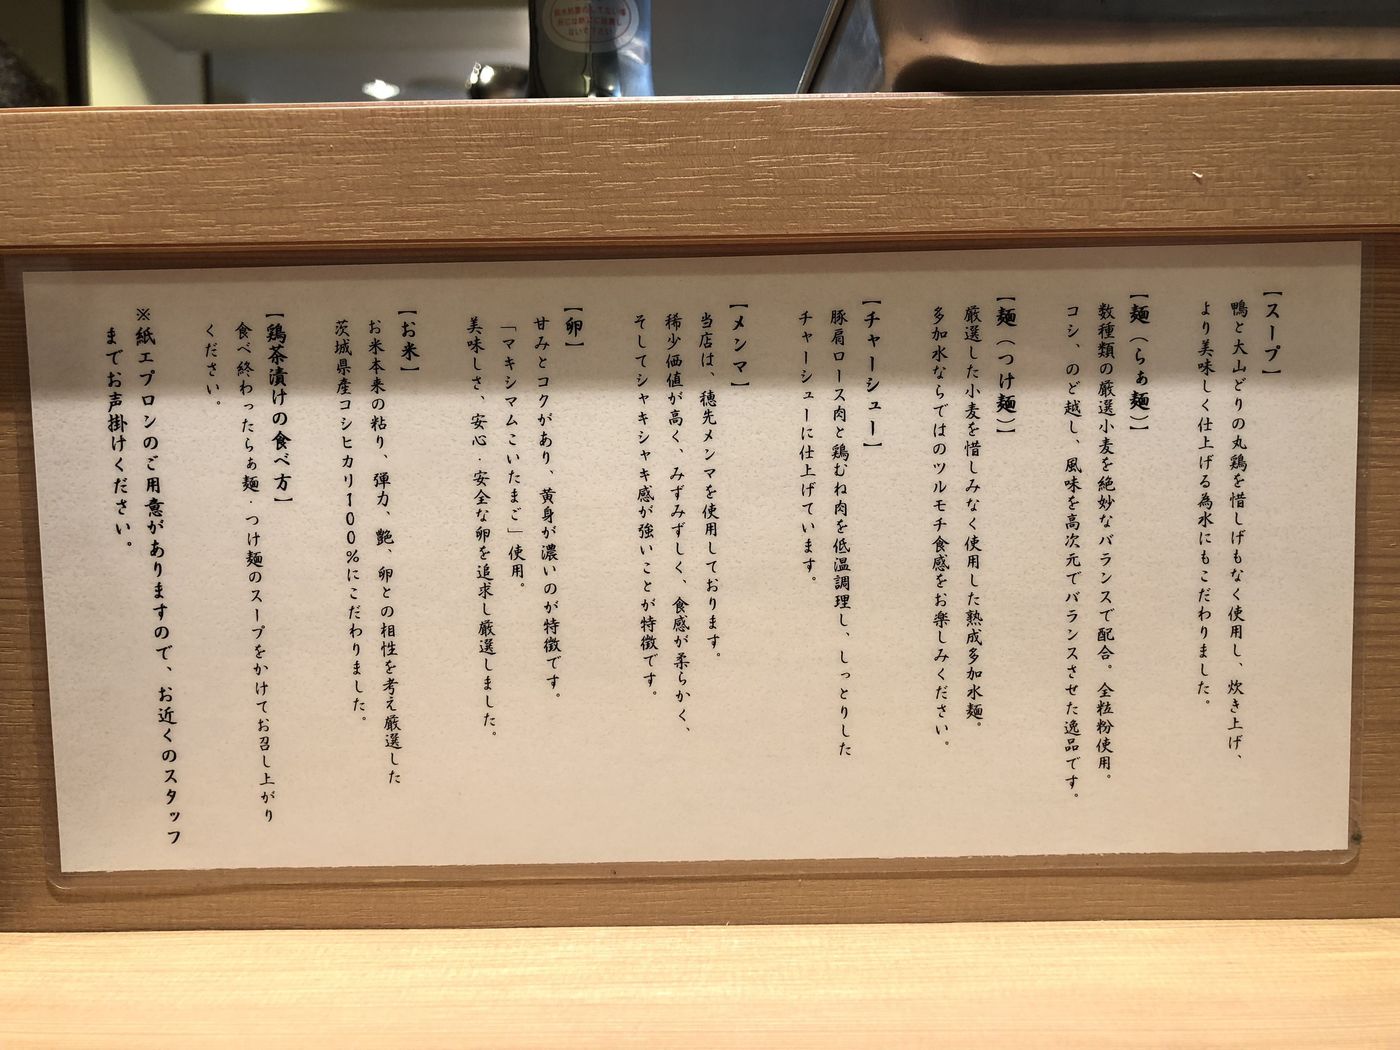 【スープ】
鴨と大山どりの丸鶏を惜しげもなく使用し、炊き上げ、
より美味しく仕上げる為水にもこだわりました。
【麺（らぁ麺）】
数種類の厳選小麦を絶妙なバランスで配合。全粒粉使用。
コシ、のど越し、風味を高次元でバランスさせた逸品です。
【麺（つけ麺）】
厳選した小麦を惜しみなく使用した熟成多加水麺。
多加水ならではのツルモチ食感をお楽しみください。
【チャーシュー】
豚肩ロース肉と鶏むね肉を低温調理し、しっとりした
チャーシューに仕上げています。
【メンマ】
当店は、穂先メンマを使用しております。
稀少価値が高く、みずみずしく、食感が柔らかく、
そしてシャキシャキ感が強いことが特徴です。
【卵】
甘みとコクがあり、黄身が濃いのが特徴です。
「マキシマムこいたまご」使用。
美味しさ、安心・安全な卵を追求し厳選しました。
【お米】
お米本来の粘り、弾力、艶、卵との相性を考え厳選した
茨城県産コシヒカリ100%にこだわりました。
【鶏茶漬けの食べ方】
食べ終わったらぁ麺・つけ麺のスープをかけてお召し上がり
ください。
※紙エプロンのご用意がありますので、お近くのスタッフ
までお声掛けください。